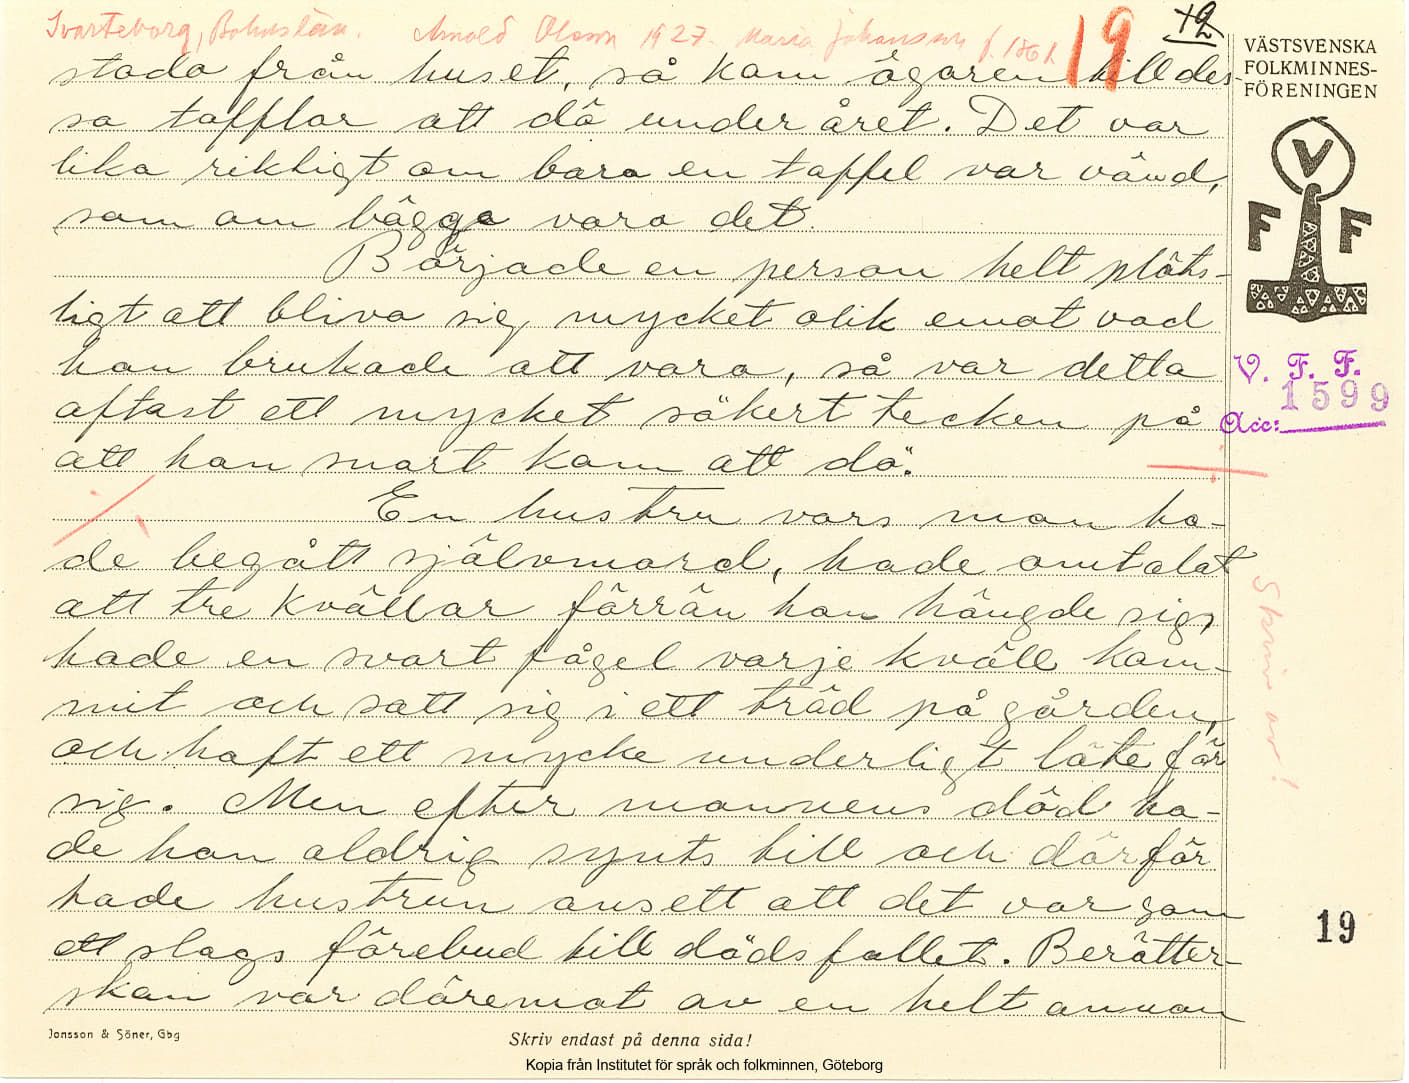 Svarteborg, Bohuslän. Arnold Olsson 1927. Maria Johansson f. 1861
19
19
VÄSTSVENSKA
FOLKMINNES-
FÖRENINGEN
V
F F
V. F. F.
1599
Acc:
stada från huset, så kom ägaren till des-
sa tafflar att dö under året. Det var
lika riktigt om bara en taffel var vänd,
som om bägge vara det.
Började en person helt plöts-
ligt att bliva sig mycket olik emot vad
han brukade att vara, så var detta
oftast ett mycket säkert tecken på
att han snart kom att dö.
En hustru vars man ha-
de begått självmord, hade omtalat
att tre kvällar förrän han hängde sig,
hade en svart fågel varje kväll kom-
mit och satt sig i ett träd på gården,
och haft ett mycke underligt läte för
sig. Men efter mannens död ha-
de han aldrig synts till och därför
hade hustrun ansett att det var som
ett slags förebud till dödsfallet. Berätter-
skan var däremot av en helt annan
Skriv av!
19
Jonsson & Söner, Gbg
Skriv endast på denna sida!
Kopia från Institutet för språk och folkminnen, Göteborg